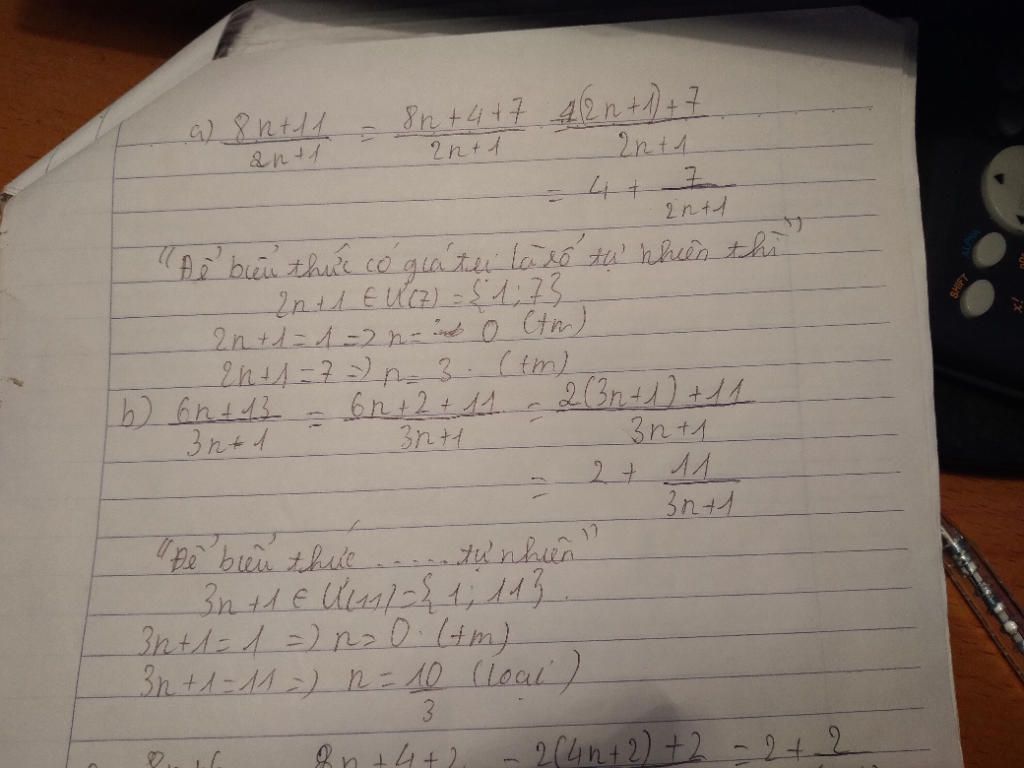 a) (8n+11)/(2n+1) = (8n+4+7)/(2n+1) (4(2n+1)+7)/(2n+1)
= 4 + 7/(2n+1)
"Để biểu thức có giá trị là số tự nhiên thì"
2n+1 ∈ Ư(7) = {1;7}
2n+1=1 => n= 0 (tm)
2n+1=7 => n= 3. (tm)
b) (6n+13)/(3n+1) = (6n+2+11)/(3n+1) = (2(3n+1)+11)/(3n+1)
= 2 + 11/(3n+1)
"Để biểu thức ..... tự nhiên"
3n+1 ∈ Ư(11)={1; 11}.
3n+1=1 => n=0. (tm)
3n+1=11 => n = 10/3 (loại)
8n+4+2 = 2(4n+2)+2 = 2+ 2
SHIFT
ALPHA
x!